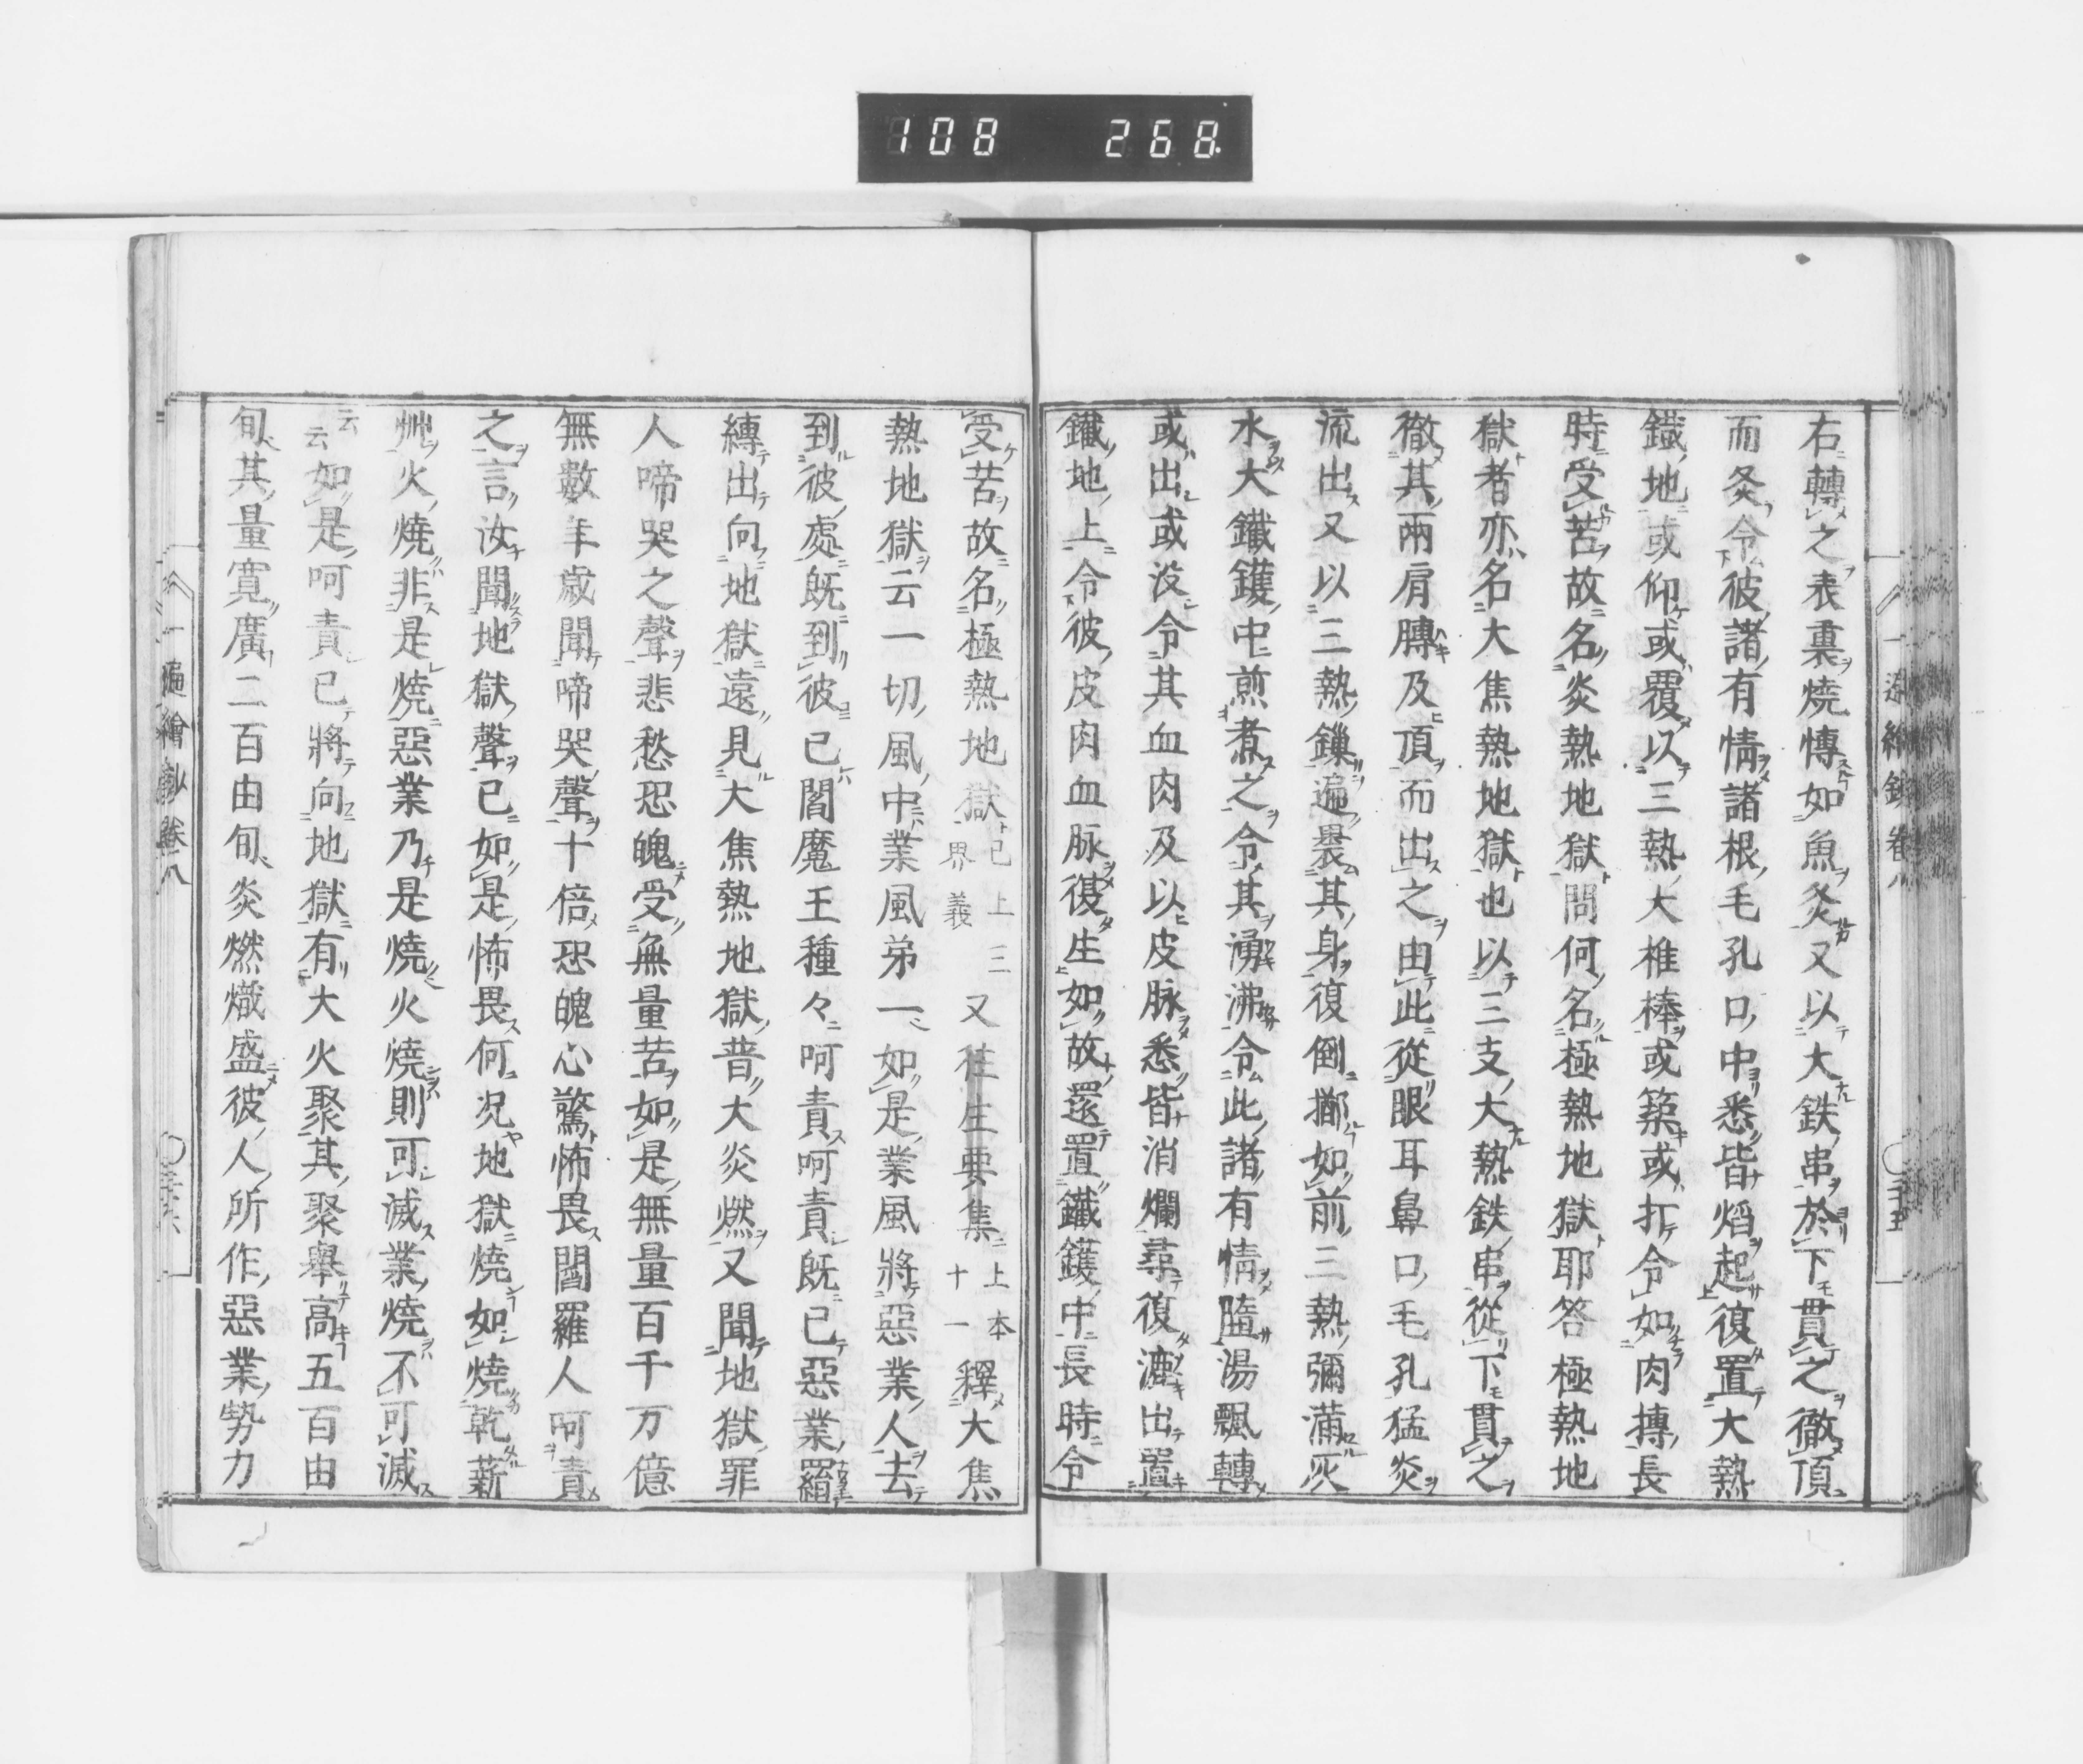 108 268
右轉之表裏燒愽如魚炙又以大鉄串於下貫之徹頂
而炙令彼諸有情諸根毛孔口中悉皆焰起復置大熱
鐵地或仰或覆以三熱大椎棒或築或打令如肉摶長
時受苦故名炎熱地獄問何名極熱地獄耶答極熱地
獄者亦名大焦熱地獄也以三支大熱鉄串從下貫之
徹其兩肩膊及頂而出之由此從眼耳鼻口毛孔猛炎
流出又以三熱鏁遍褁其身復倒擲如前三熱彌滿灰
水大鐵鑊中煎煮之令其湧沸令此諸有情隨湯飄轉
或出或没令其血肉及以皮脉悉皆消爛尋復漉出置
鐵地上令彼皮肉血脉復生如故還置鐵鑊中長時令
受苦故名極熱地獄已上三界義又往生要集上本十一釋大焦
熱地獄云一切風中業風弟一如是業風將惡業人去
到彼處既到彼已閻魔王種々呵責呵責既已惡業羂
縛出向地獄遠見大焦熱地獄普大炎燃又聞地獄罪
人啼哭之聲悲愁恐魄受無量苦如是無量百千万億
無數年歳聞啼哭聲十倍恐魄心驚怖畏閻羅人呵責
之言汝聞地獄聲已如是怖畏何况地獄燒如燒乾薪
艸火燒非是燒惡業乃是燒火燒則可滅業燒不可滅
云云如是呵責已將向地獄有大火聚其聚舉高五百由
旬其量寛廣二百由旬炎燃熾盛彼人所作惡業勢力
一遍繪鈔卷八